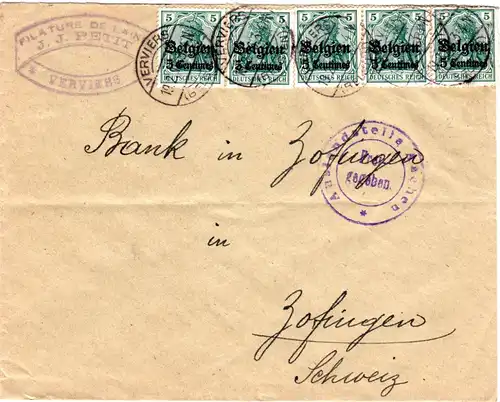 FILATURE DE LAINE
J. J. PETIT
VERVIERS
VERVIERS
5 5 5 5 5
Belgien Belgien Belgien Belgien Belgien
5 Centimes 5 Centimes 5 Centimes 5 Centimes 5 Centimes
DEUTSCHES REICH DEUTSCHES REICH DEUTSCHES REICH DEUTSCHES REICH DEUTSCHES REICH
Bank in Zofingen
Auslandstelle Aachen
Frei-
gegeben.
in
Zofingen
Schweiz